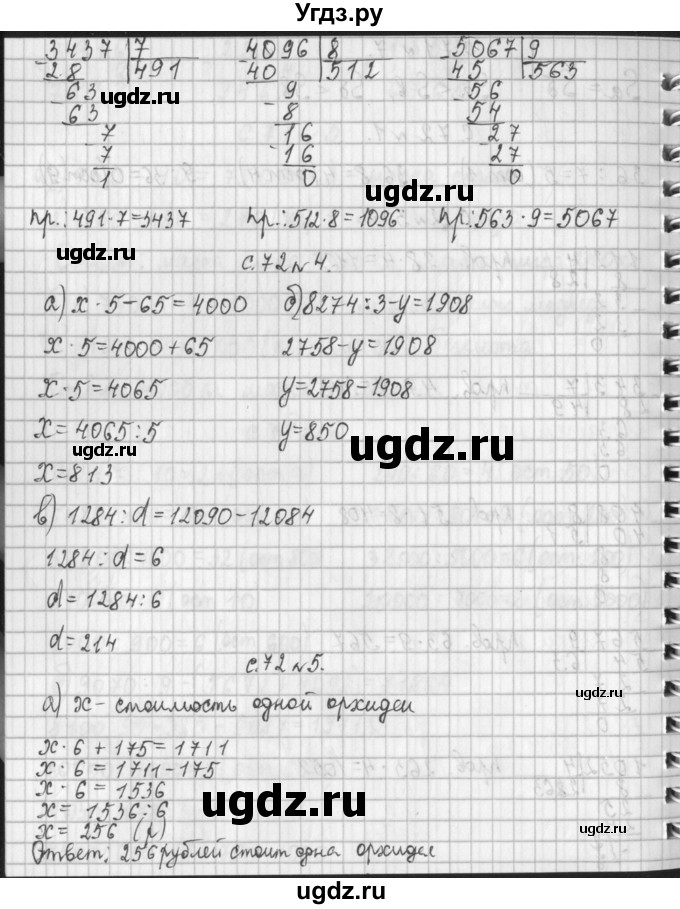 Угдз.ру
3437 | 7 4096 | 8 5067 | 9
28 491 40 512 45 563
63 9 56
63 8 54
7 16 27
7 16 27
1 0 0
ugdz.ru
пр.: 491·7=3437 пр.: 512·8=1096 пр.: 563·9=5067
ugdz.ru
с.72 №4.
а) x·5-65=4000 б) 8274:3-y=1908
x·5=4000+65 2758-y=1908
x·5=4065 y=2758-1908
x=4065:5 y=850
ugdz.ru
x=813
в) 1284:d=12090-12084
1284:d=6
d=1284:6
d=214
с.72 №5.
ugdz.ru
а) x - стоимость одной орхидеи
x·6+175=1711
x·6=1711-175
x·6=1536
x=1536:6
x=256 (р)
ugdz.ru
ugdz.ru
Ответ: 256 рублей стоит одна орхидея
ugdz.ru